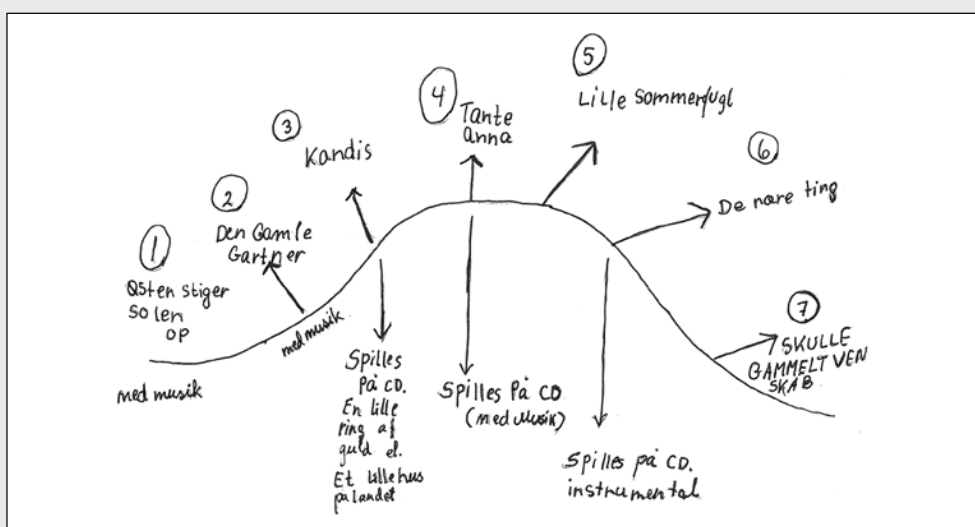 1
Østen stiger
solen
op
med musik
2
Den Gamle
Gartner
med musik
3
Kandis
Spilles
På CD.
En lille
ring af
guld el.
Et lille hus
på landet
4
Tante
anna
Spilles På CD
(med Musik)
5
Lille Sommerfugl
6
De nære ting
Spilles på CD.
instrumental
7
SKULLE
GAMMELT VEN
SKAB